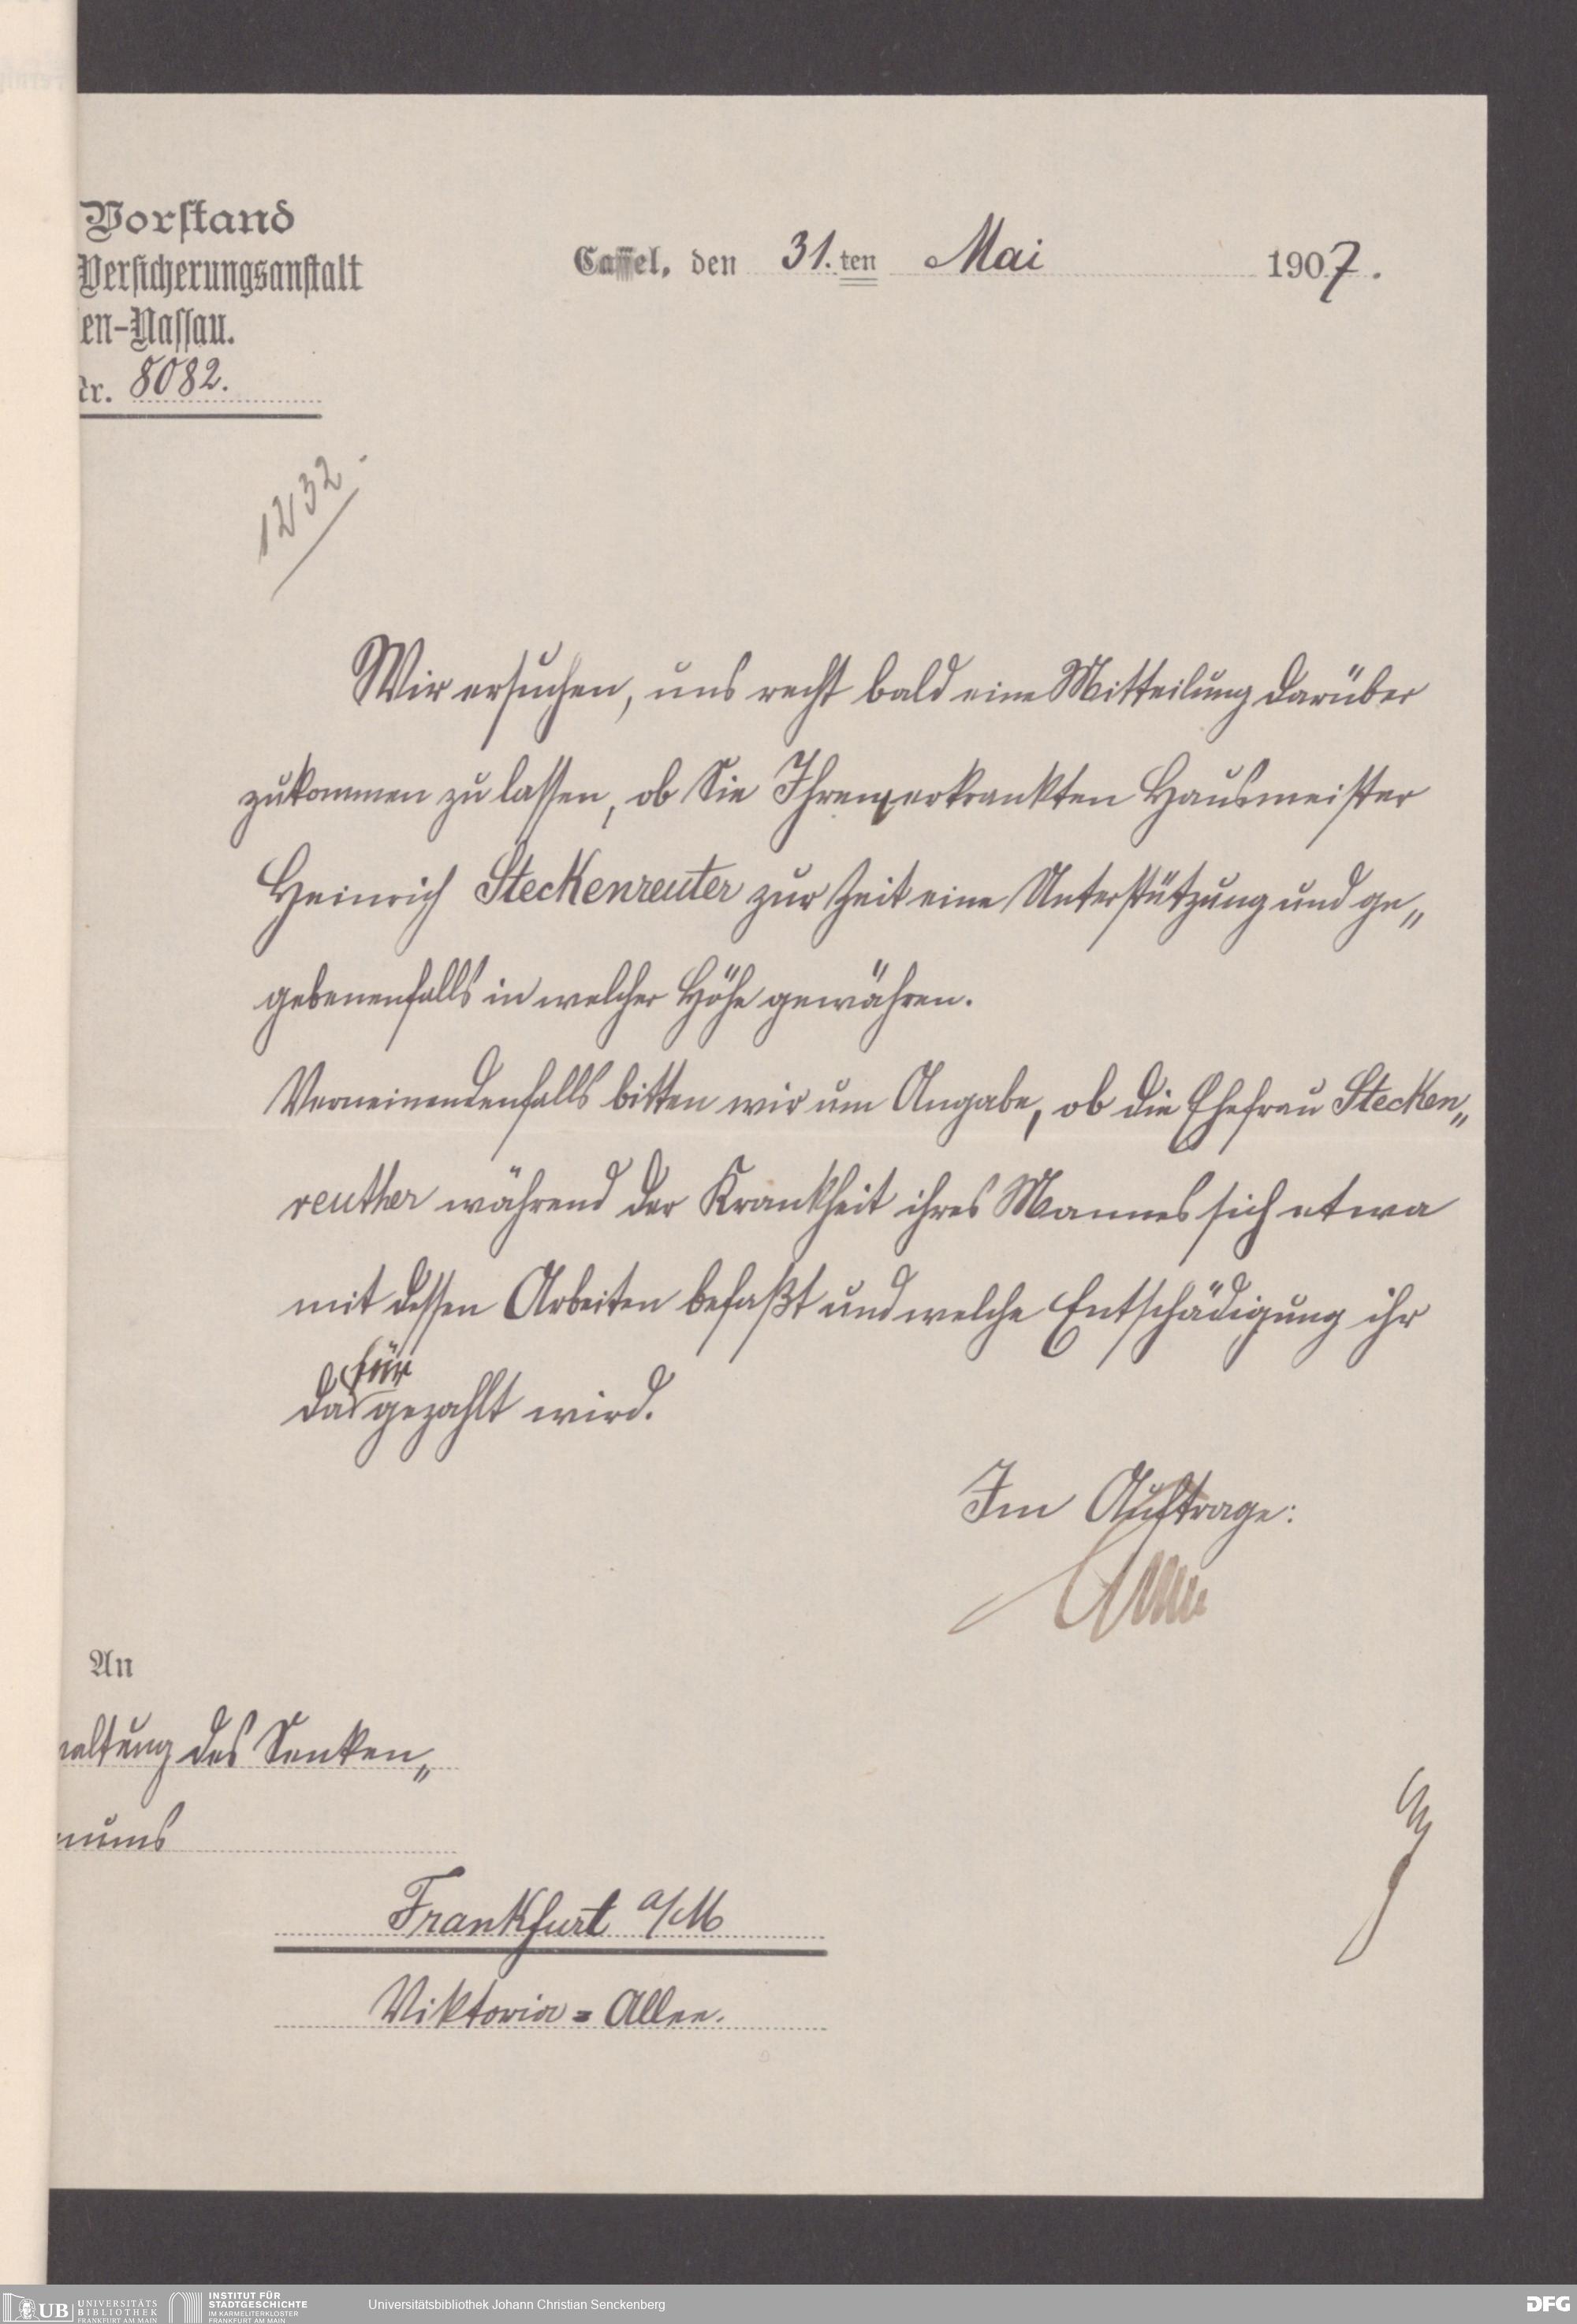 Vorstand
Versicherungsanstalt
en-Nassau.
Nr. 8082.
Cassel, den 31.ten Mai 1907.
1232.
Wir ersuchen, uns recht bald eine Mitteilung darüber
zukommen zu lassen, ob Sie Ihrem erkrankten Hausmeister
Heinrich Steckenreuter zur Zeit eine Unterstützung und ge„
gebenenfalls in welcher Höhe gewähren.
Verneinendenfalls bitten wir um Angabe, ob die Ehefrau Stecken„
reuther während der Krankheit ihres Mannes sich etwa
mit dessen Arbeiten befaßt und welche Entschädigung ihr
für
das gezahlt wird.
Im Auftrage:
An
waltung des Senken„
nums
Frankfurt a/M
Viktoria=Allee.
UB UNIVERSITÄTS BIBLIOTHEK FRANKFURT AM MAIN
INSTITUT FÜR STADTGESCHICHTE IM KARMELITERKLOSTER FRANKFURT AM MAIN
Universitätsbibliothek Johann Christian Senckenberg
DFG